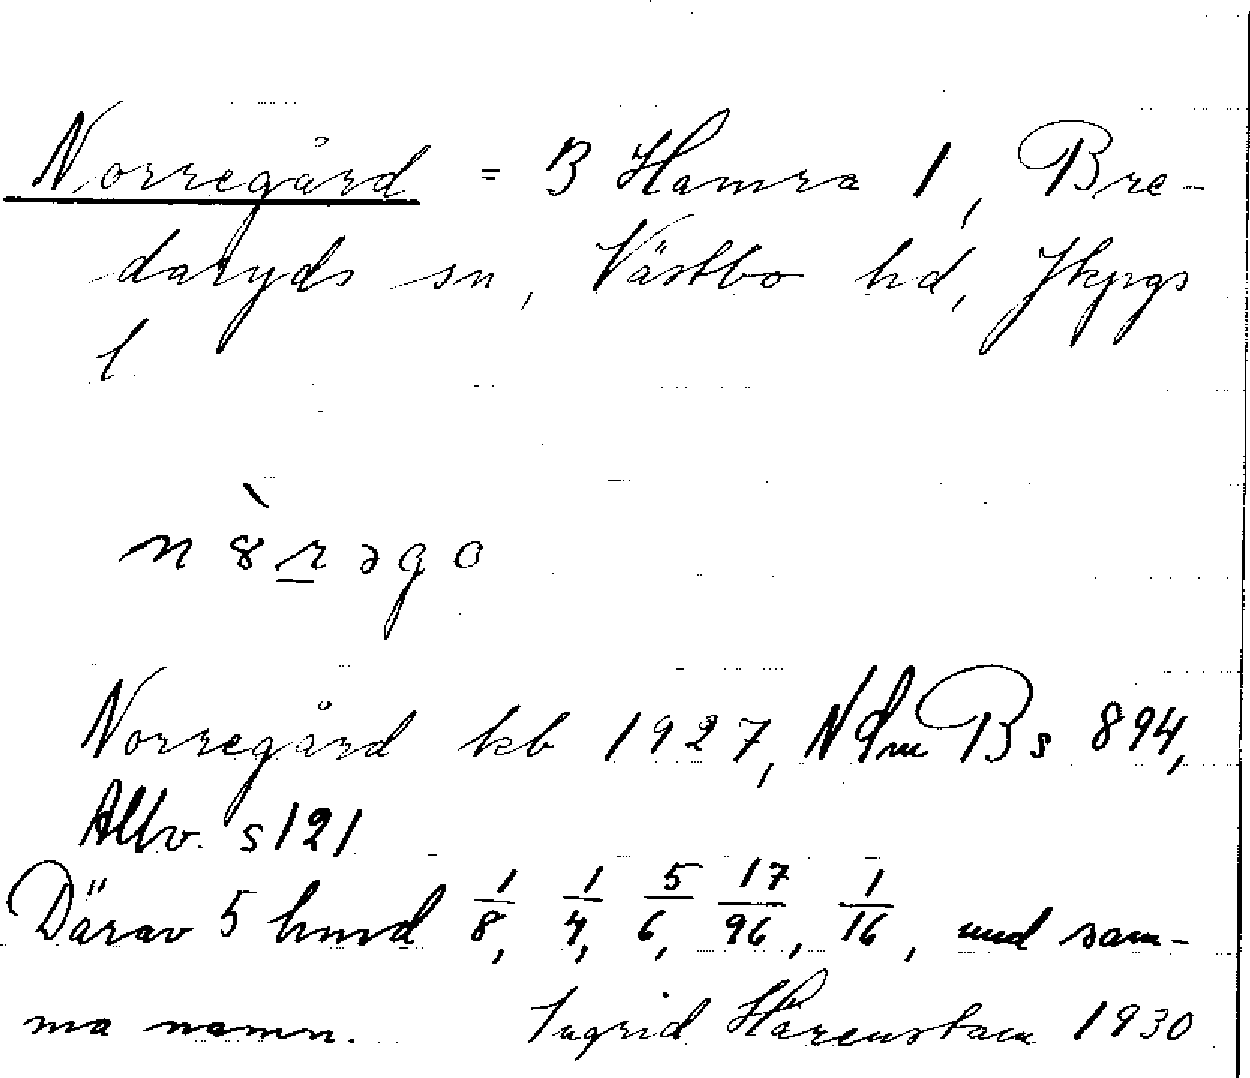 Norregård = B Hamra 1, Bre-
daryds sn, Västbo hd, Jkpgs
l
n 8̀ r̲ ə g o
Norregård kb 1927, NdmBs 894,
Allv. s 121
Därav 5 hmd 1/8, 1/4, 5/6, 17/96, 1/16, und sam-
ma namn. Ingrid Härenstam 1930